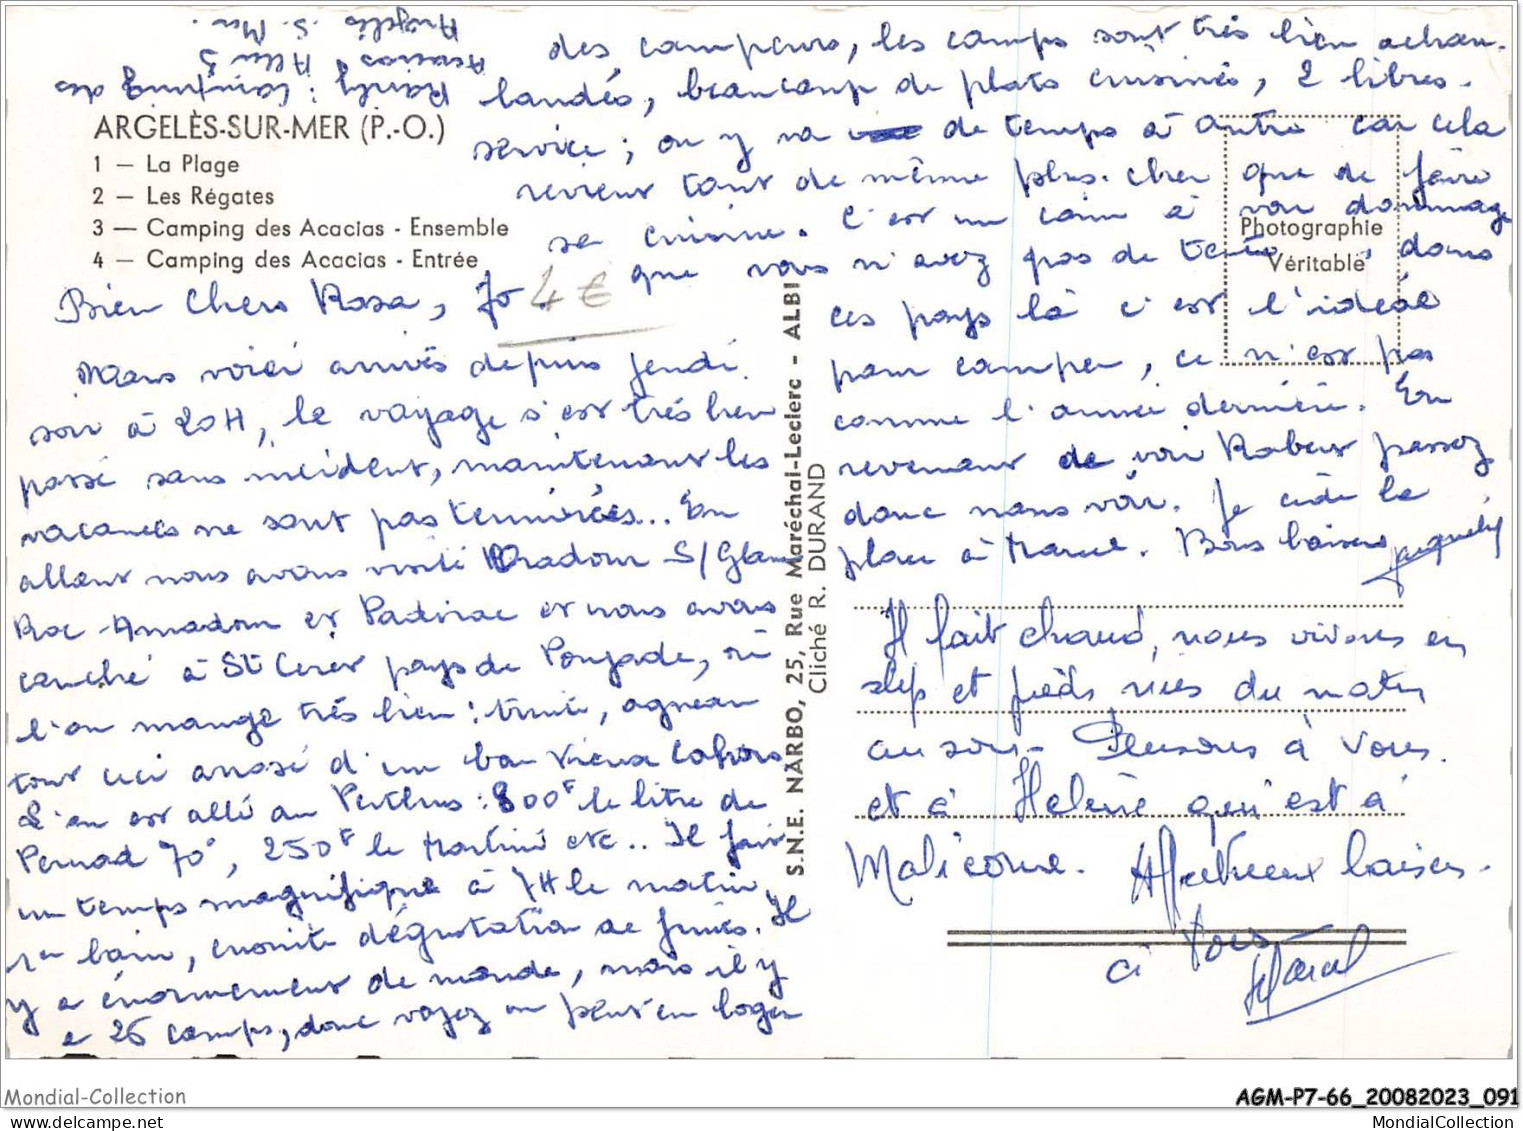 Railly : Camping des
Acacias Allée 3
Argelès S. Mer.
ARGELÈS-SUR-MER (P.-O.)
1 — La Plage
2 — Les Régates
3 — Camping des Acacias - Ensemble
4 — Camping des Acacias - Entrée
Bien Chers Rosa, Jo
4 €
Nous voici arrivés depuis jeudi
soir à 20H, le voyage s'est très bien
passé sans incident, maintenant les
vacances ne sont pas terminées... En
allant nous avons visité Oradour S/Glane
Roc-Amadour et Padirac et nous avons
couché à St Ceret pays de Poujade, où
l'on mange très bien : truite, agneau
tout ceci arrosé d'un bon vieux Cahors
L'on est allé au Perthus : 800F le litre de
Pernod 70°, 250F le Martini etc.. Il fait
un temps magnifique à 7H le matin,
1er bain, ensuite dégustation de fruits. Il
y a énormément de monde, mais il y
a 26 camps, donc voyez on peut en loger
des campeurs, les camps sont très bien achan-
landés, beaucoup de plats cuisinés, 2 libres-
service ; on y va de temps à autre car cela
revient tout de même plus cher que de faire
sa cuisine. C'est un coin à voir dommage
que vous n'avez pas de tente, dans
ces pays là c'est l'idéal
pour camper, ce n'est pas
comme l'année dernière. En
revenant de voir Robert passez
donc nous voir. Je cède la
place à Marcel. Bons baisers
Jacquely
Il fait chaud, nous vivons en
slip et pieds nus du matin
au soir. Pensons à vous
et à Helène qui est à
Malicorne. Affectueux baisers
à tous
Marcel
Photographie
Véritable
S.N.E. NARBO, 25, Rue Maréchal-Leclerc - ALBI
Cliché R. DURAND
Mondial-Collection
AGM-P7-66_20082023_091
MondialCollection